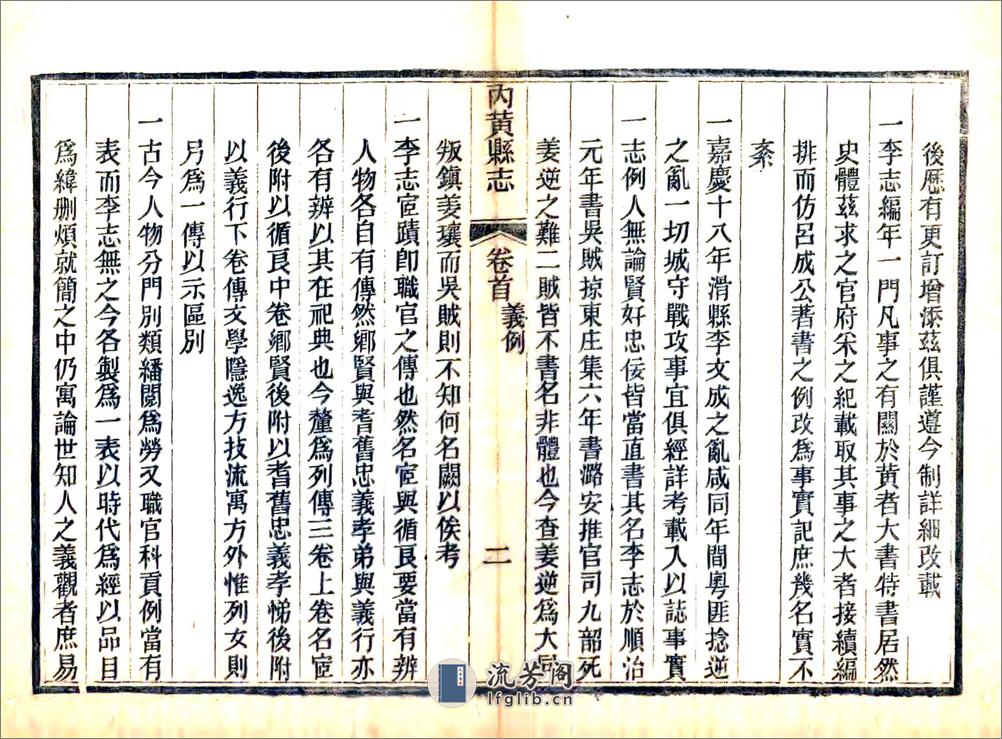 後歴有更訂增添茲俱謹遵今制詳細改載
一李志編年一門凡事之有關於黃者大書特書居然
史體茲求之官府宋之紀載取其事之大者接續編
排而仿呂成公著書之例改爲事實記庶幾名實不
紊
一嘉慶十八年滑縣李文成之亂咸同年間粤匪捻逆
之亂一切城守戰攻事宜俱經詳考載入以誌事實
一志例人無論賢奸忠佞皆當直書其名李志於順治
元年書吳賊掠東庄集六年書潞安推官司九韶死
姜逆之難二賊皆不書名非體也今查姜逆爲大同
内黃縣志 卷首 義例 二
叛鎮姜瓖而吳賊則不知何名闕以俟考
一李志宦蹟卽職官之傳也然名宦與循良要當有辨
人物各自有傳然鄉賢與耆舊忠義孝弟與義行亦
各有辨以其在祀典也今釐爲列傳三卷上卷名宦
後附以循良中卷鄉賢後附以耆舊忠義孝悌後附
以義行下卷傳文學隱逸方技流寓方外惟列女則
另爲一傳以示區別
一古今人物分門別類繙閱爲勞又職官科貢例當有
表而李志無之今各製爲一表以時代爲經以品目
爲緯刪煩就簡之中仍寓論世知人之義觀者庶易
流芳阁
lfglib.cn